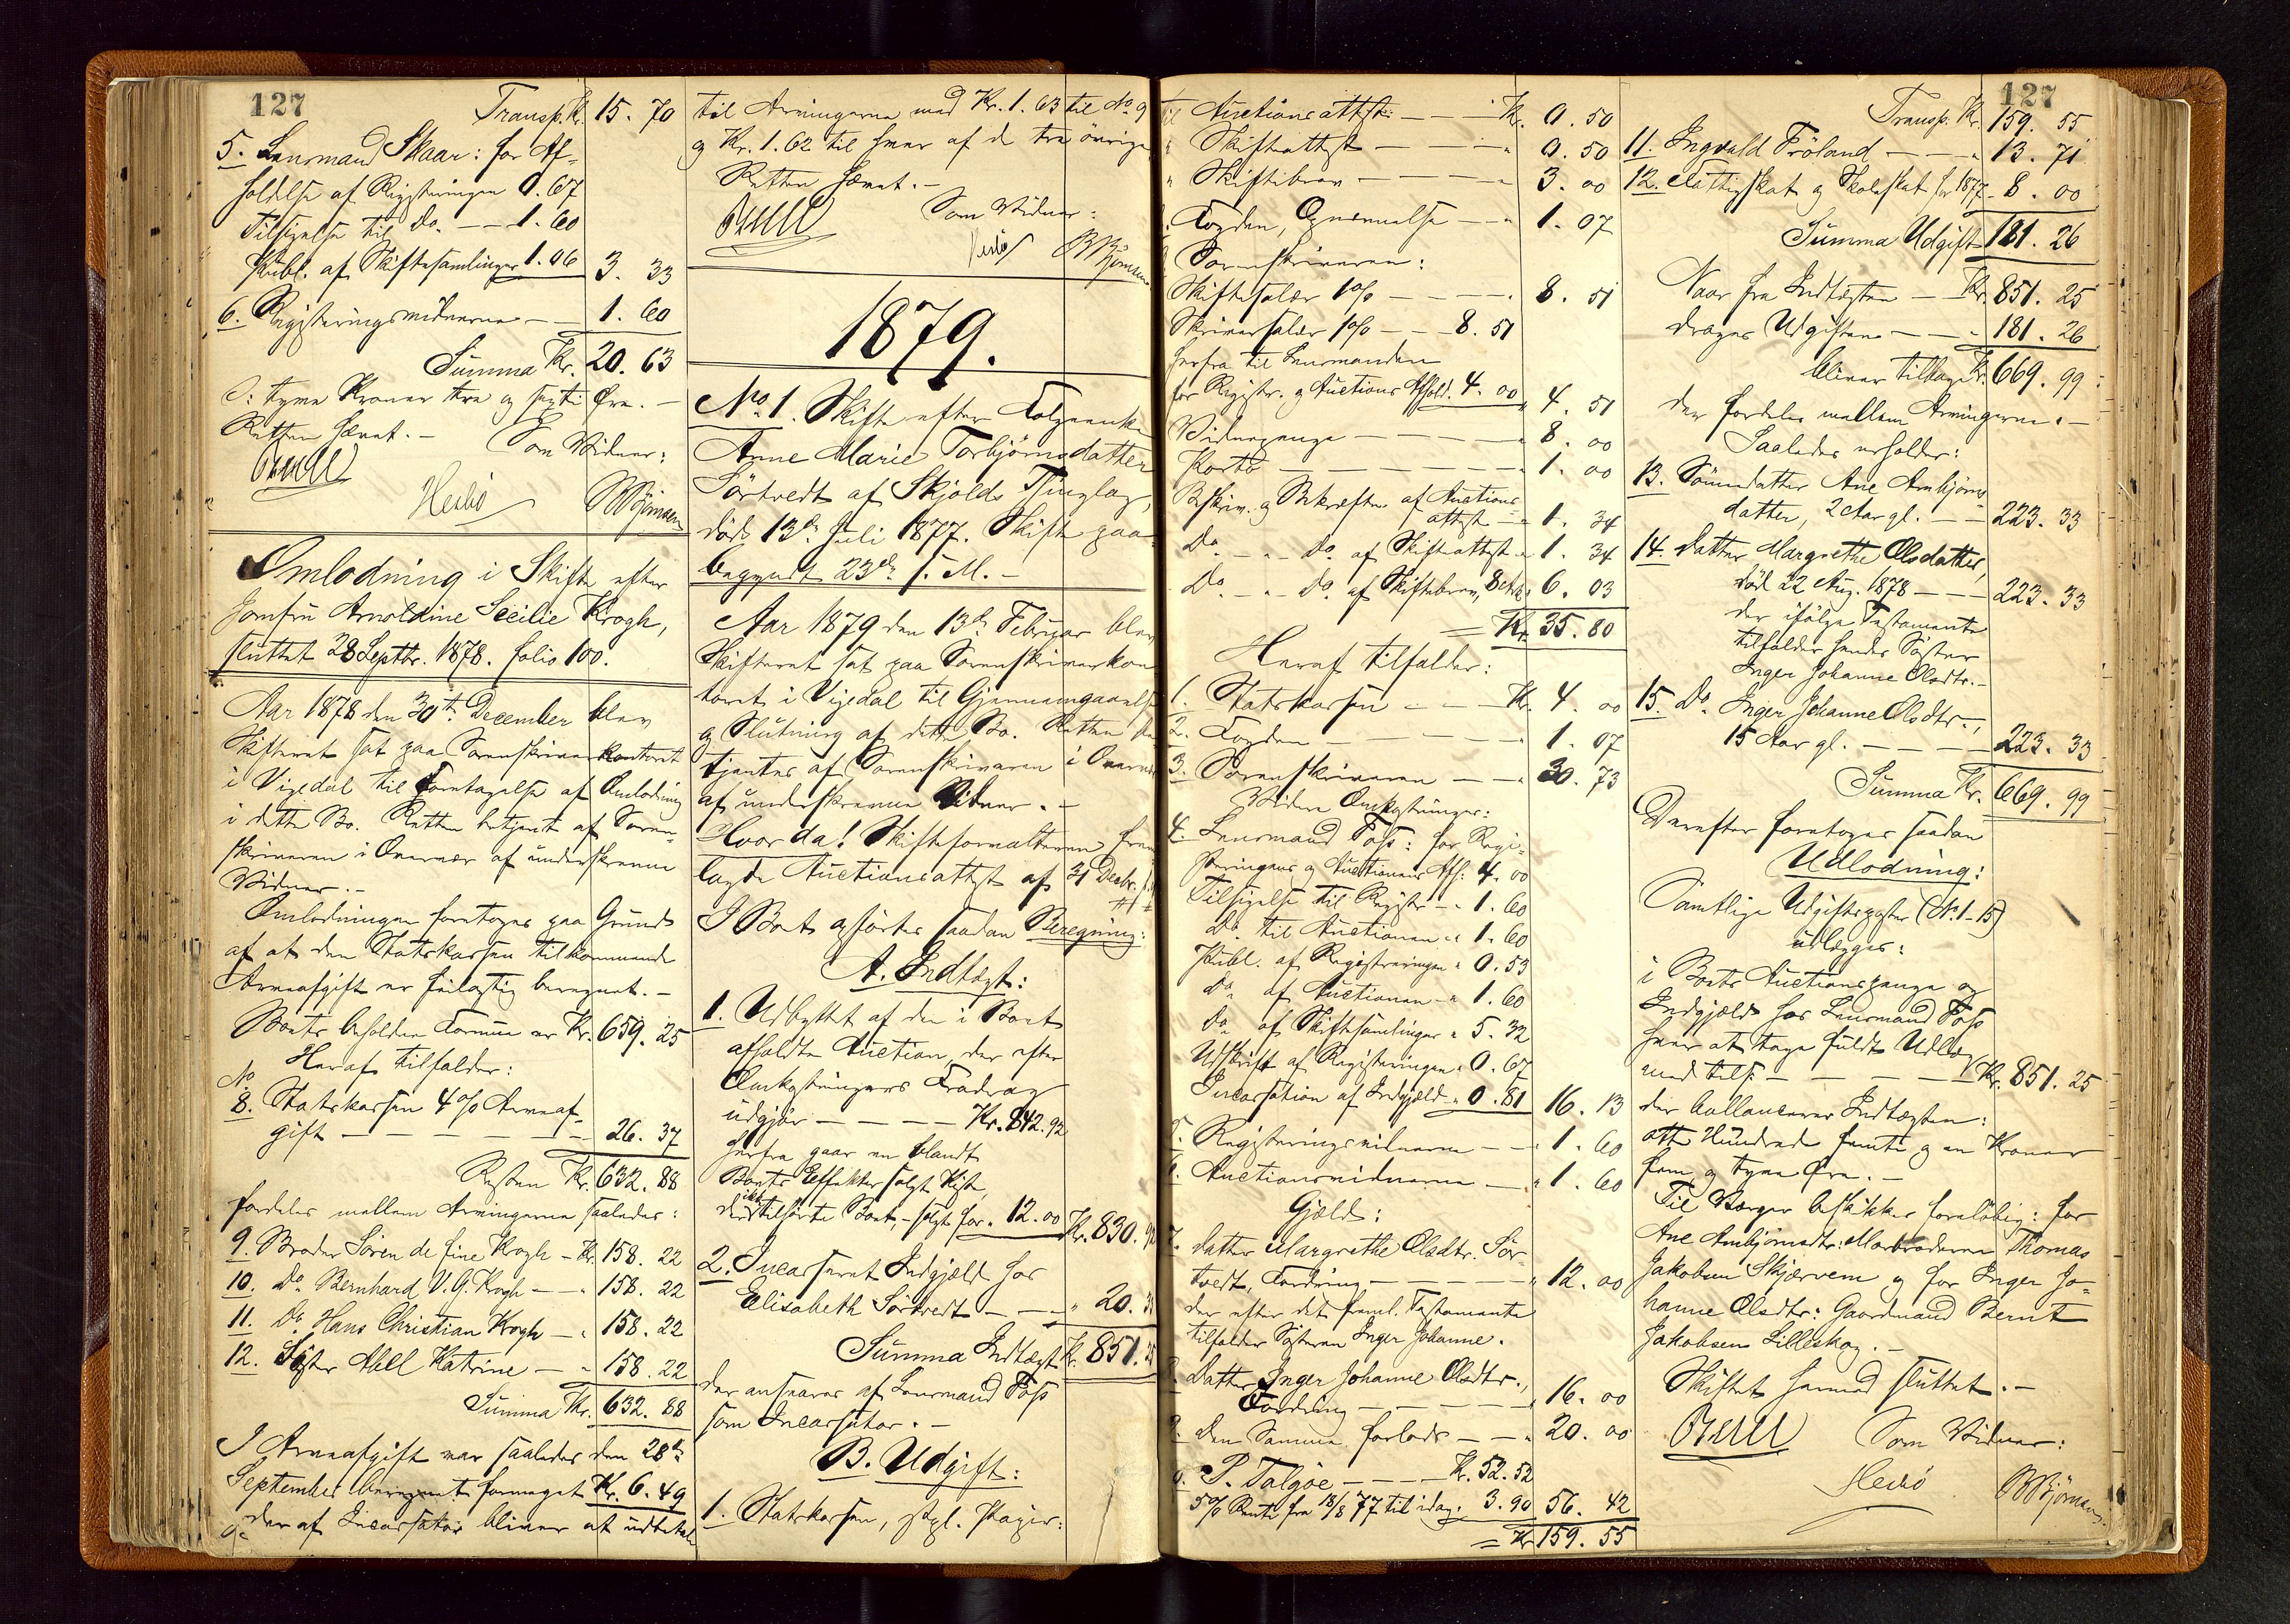 127
Transp. Kr. 15. 70
5. Lensmand Skaar: for Af-
holdelse af Registeringen 0. 67
Tilsigelse til Do. — — 1. 60
Publ. af Skiftesamlinger 1. 06 3. 33
6. Registeringsvidnerne — — 1. 60
Summa Kr. 20. 63
ɔ: tyve Kroner tre og sexti Øre. —
Retten hævet. — Som Vidner:
Hesbö BBjörnsen
Omlodning i Skifte efter
Jomfru Arnoldine Secilie Krogh,
sluttet 28 Septbr. 1878. folio 100.
Aar 1878 den 30te December blev
Skifteret sat paa Sorenskriverkontoret
i Vigedal til Foretagelse af Omlodning
i dette Bo. Retten betjent af Soren-
skriveren i Overvær af underskrevne
Vidner. —
Omlodningen foretoges paa Grund
af at den Statskassen tilkommende
Arveafgift er feilagtig beregnet. —
Boets beholdne Formue er Kr. 659. 25
Heraf tilfalder:
No
8. Statskassen 4% Arveaf-
gift — — — — — 26. 37
Resten Kr. 632. 88
fordeles mellem Arvingerne saaledes:
9. Broder Sören de fine Krogh — Kr. 158. 22
10. Do Bernhard V. G. Krogh — — " 158. 22
11. Do Hans Christian Krogh — " 158. 22
12. Søster Abell Katrine — " 158. 22
Summa Kr. 632. 88
I Arveafgift var saaledes den 28de
September beregnet formeget Kr. 6. 49
der af Incassator bliver at udbetale
til Arvingerne med Kr. 1. 63 til No 9
og Kr. 1. 62 til hver af de tre övrige
Retten hævet. —
Som Vidner:
Hesbö BBjörnsen
1879.
No 1. Skifte efter Folgeenke
Anne Marie Torbjörnsdatter
Sörtvedt af Skjolds Thinglag,
död 13de Juli 1877. Skifte paa-
begyndt 23de s. M. —
Aar 1879 den 13de Februar blev
Skifteret sat paa Sorenskriverkon
toret i Vigedal til Gjennemgaaelse
og Slutning af dette Bo. Retten be
tjentes af Sorenskriveren i Overvær
af underskrevne Vidner. —
Hvorda! Skifteforvalteren frem
lagde Auctionsattest af 31 Decbr.
I Boet opförtes saadan Beregning:
A. Indtægt:
1. Udbyttet af den i Boet
afholdte Auction, der efter
Omkostningers Fradrag
udgjör — — — — Kr. 842. 92
herfra gaar en blandt
Boets Effekter solgt Kiste,
der ikke tilhörte Boet, — solgt for " 12. 00 Kr. 830. 92
2. Incasseret Indgjæld hos
Elisabeth Sörtvedt — — — " 20. 33
Summa Indtægt Kr. 851. 25
der ansvares af Lensmand Foss
som Incassator. —
B. Udgift:
1. Statskassen, stpl. Papir:
127
til Auctionsattest — — — Kr. 0. 50
" Skifteattest — — — — " 0. 50
" Skiftebrev — — — — " 3. 00
2. Fogden, Opnævnelse — — " 1. 07
3. Sorenskriveren:
Skiftesalær 1% — — — — " 8. 51
Skriversalær 1% — — 8. 51
herfra til Lensmanden
for Registr. og Auctions Afhold. 4. 00 " 4. 51
Vidnepenge — — — — — " 8. 00
Porto — — — — — — " 1. 00
Beskriv. og Bekræften af Auctions-
attest — " 1. 34
Do — " — Do af Skifteattest " 1. 34
Do — " — Do af Skiftebrev, 8 Ark " 6. 03
= Kr. 35. 80
Heraf tilfalder:
1. Statskassen — — — Kr. 4. 00
2. Fogden — — — — — " 1. 07
3. Sorenskriveren — — " 30. 73
Videre Omkostninger:
4. Lensmand Foss: for Regi-
steringens og Auctionens Afh: 4. 00
Tilsigelse til Registr. — " 1. 60
Do til Auctionen " 1. 60
Publ. af Registreringen " 0. 53
Do af Auctionen — " 1. 60
Do af Skiftesamlinger " 5. 32
Udskrift af Registeringen " 0. 67
Incassation af Indgjæld " 0. 81 16. 13
5. Registeringsvidnerne — — " 1. 60
6. Auctionsvidnerne — " 1. 60
Gjæld:
7. Datter Margrethe Olsdtr. Sör-
tvedt, Fordring — — — — — " 12. 00
der efter det feml. Testamente
tilfalder Søsteren Inger Johanne.
8. Datter Inger Johanne Olsdtr.,
Fordring — — — — — " 16. 00
9. Den Samme forlods — — " 20. 00
10. P. Talgöe — — — — Kr. 52. 52
5% Rente fra 18/8 77 til idag " 3. 90 56. 42
= Kr. 159. 55
127
Transp. Kr. 159. 55
11. Ingvald Fröland — — — " 13. 71
12. Fattigskat og Skoleskat for 1877 — 8. 00
Summa Udgift 181. 26
Naar fra Indtægten — Kr. 851. 25
drages Udgiften — — — " 181. 26
bliver tilbage Kr. 669. 99
der fordeles mellem Arvingerne. —
Saaledes erholder:
13. Sönnedatter Ane Arnbjörns-
datter, 2 Aar gl. — — 223. 33
14. Datter Margrethe Olsdatter,
död 22 Aug. 1878 — — — 223. 33
der ifölge Testamente
tilfalder hendes Søster
Inger Johanne Olsdtr. —
15. Do Inger Johanne Olsdtr.,
15 Aar gl. — — — — 223. 33
Summa Kr. 669. 99
Derefter foretoges saadan
Udlodning:
Samtlige Udgiftsposter (No 1–15)
udlægges:
i Boets Auctionspenge og
Indgjæld hos Lensmand Foss
hver at tage fuldt Udlæg
med tils: — — — — — Kr. 851. 25
der ballancerer Indtægten:
otte Hundrede femti og en Kroner
fem og tyve Øre. —
Til Værger beskikkes foreløbig: for
Ane Arnbjörnsdtr: Morbroderen Thomas
Jakobsen Skjærvem og for Inger Jo-
hanne Olsdtr: Gaardmand Bernt
Jakobsen Lilleskog. —
Skiftet hermed sluttet. —
Som Vidner:
Hesbö BBjörnsen